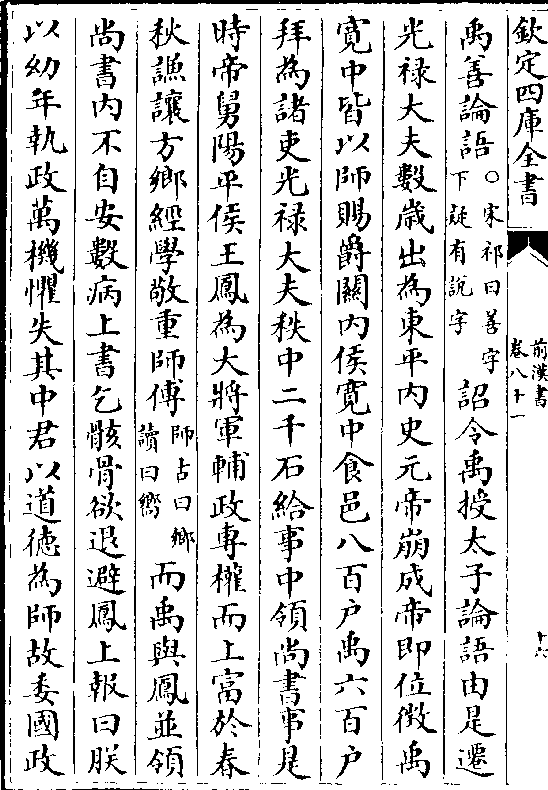 欽定四庫全書
前漢書
卷八十一
十六
禹善論語○宋祁曰善字下疑有說字詔令禹授太子論語由是遷
光禄大夫數歲出為東平内史元帝崩成帝即位徵禹
寛中皆以師賜爵關内侯寛中食邑八百户禹六百户
拜為諸吏光禄大夫秩中二千石給事中領尚書事是
時帝舅陽平侯王鳳為大將軍輔政專權而上富於春
秋謙讓方鄉經學敬重師傅師古曰鄉讀曰嚮而禹與鳳並領
尚書内不自安數病上書乞骸骨欲退避鳳上報曰朕
以幼年執政萬機懼失其中君以道徳為師故委國政